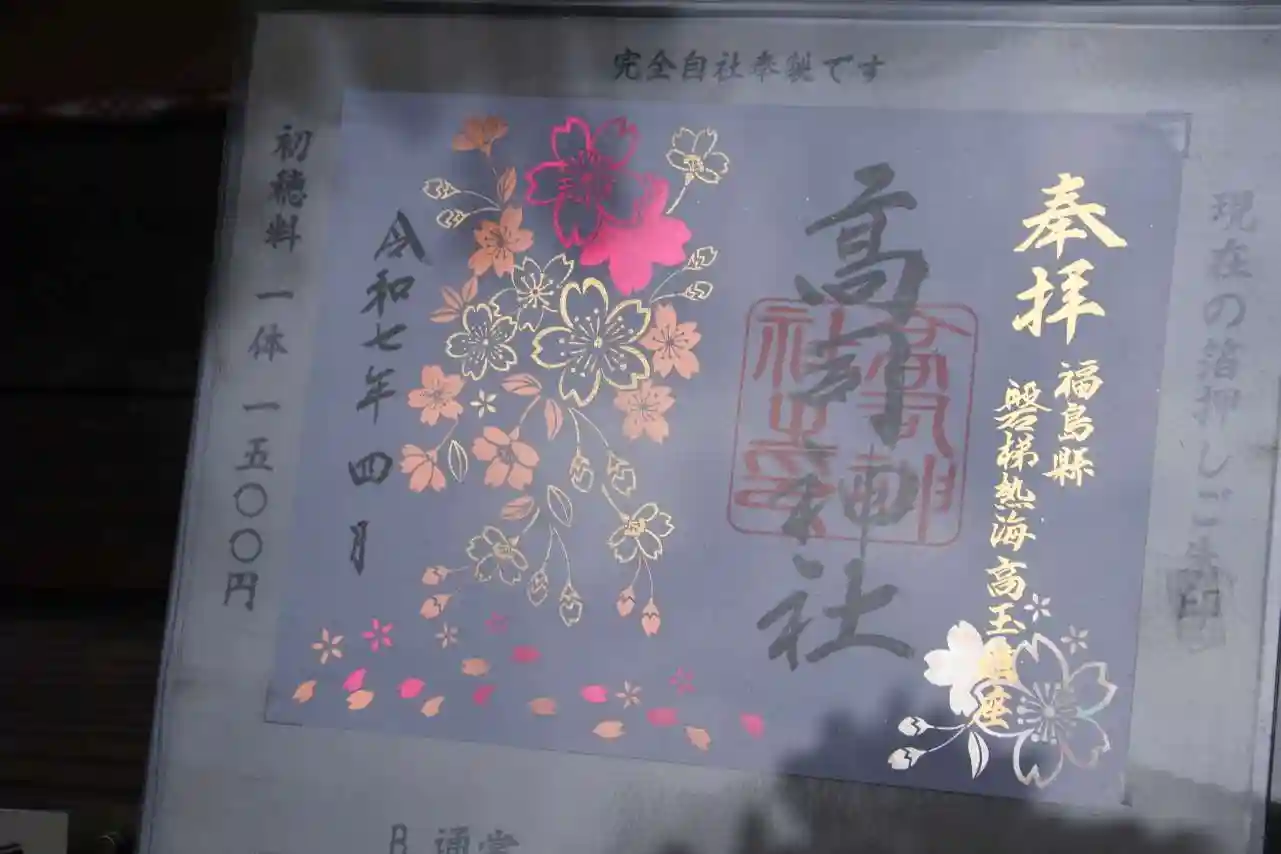 完全自社奉製です
現在の箔押しご朱印
奉拝
福島縣
磐梯熱海高玉鎮座
高司神社
令和七年四月
初穂料 一体 一五〇〇円
B 通常